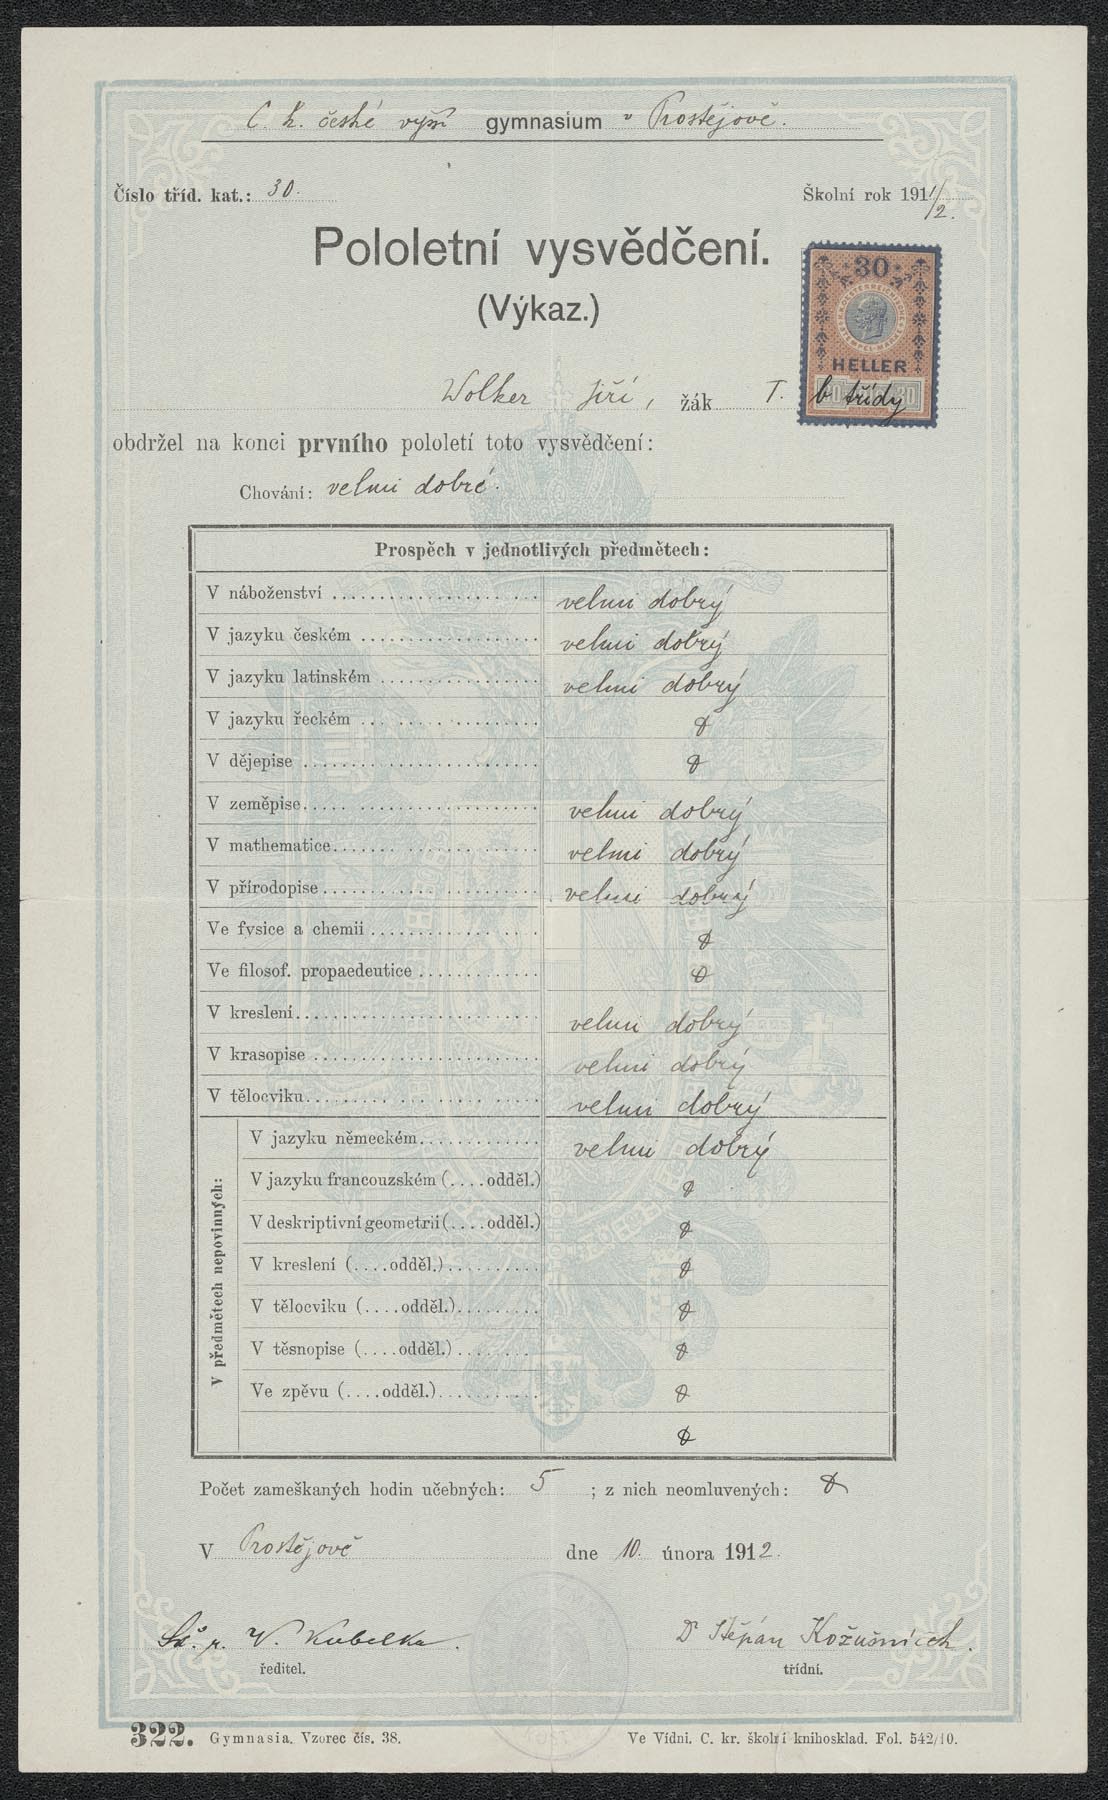 C. k. české vyšší gymnasium v Prostějově.
Číslo tříd. kat.: 30.
Školní rok 1911/2.
Pololetní vysvědčení.
(Výkaz.)
30
HELLER
Wolker Jiří, žák I. b třídy
obdržel na konci prvního pololetí toto vysvědčení:
Chování: velmi dobré.
Prospěch v jednotlivých předmětech:
V náboženství velmi dobrý
V jazyku českém velmi dobrý
V jazyku latinském velmi dobrý
V jazyku řeckém
V dějepise
V zeměpise velmi dobrý
V mathematice velmi dobrý
V přírodopise velmi dobrý
Ve fysice a chemii
Ve filosof. propaedeutice
V kreslení velmi dobrý
V krasopise velmi dobrý
V tělocviku velmi dobrý
V předmětech nepovinných:
V jazyku německém velmi dobrý
V jazyku francouzském (....odděl.)
V deskriptivní geometrii (....odděl.)
V kreslení (....odděl.)
V tělocviku (....odděl.)
V těsnopise (....odděl.)
Ve zpěvu (....odděl.)
Počet zameškaných hodin učebných: 5 ; z nich neomluvených:
V Prostějově dne 10. února 1912.
V. Kubelka.
Dr Štěpán Kožušníček.
ředitel.
třídní.
322. Gymnasia. Vzorec čís. 38.
Ve Vídni. C. kr. školní knihosklad. Fol. 542/10.